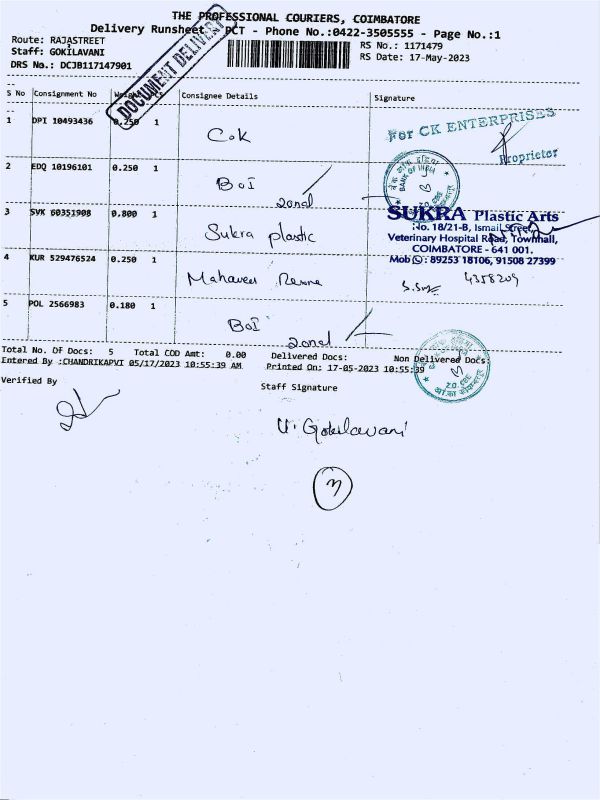 THE PROFESSIONAL COURIERS, COIMBATORE
Delivery Runsheet PCT - Phone No.:0422-3505555 - Page No.:1
Route: RAJASTREET
RS No.: 1171479
Staff: GOKILAVANI
RS Date: 17-May-2023
DRS No.: DCJB117147901
DOCUMENT DELIVERY
S No Consignment No Consignee Details Signature
1 DPI 10493436 0.250 1 Cok For CK ENTERPRISES
Proprietor
2 EDQ 10196101 0.250 1 BoI BANK OF INDIA
zonal
3 SVK 60351908 0.800 1 Sukra plastic SUKRA Plastic Arts
No. 18/21-B, Ismail Street,
Veterinary Hospital Road, Townhall,
COIMBATORE - 641 001.
Mob : 89253 18106, 91508 27399
4 KUR 529476524 0.250 1 Mahaveer
5 POL 2566983 0.180 1 BoI
zonal
Total No. Of Docs: 5 Total COD Amt: 0.00 Delivered Docs: Non Delivered Docs:
Entered By :CHANDRIKAPVI 05/17/2023 10:55:39 AM Printed On: 17-05-2023 10:55:39
Verified By
Staff Signature
V. Gokilavani